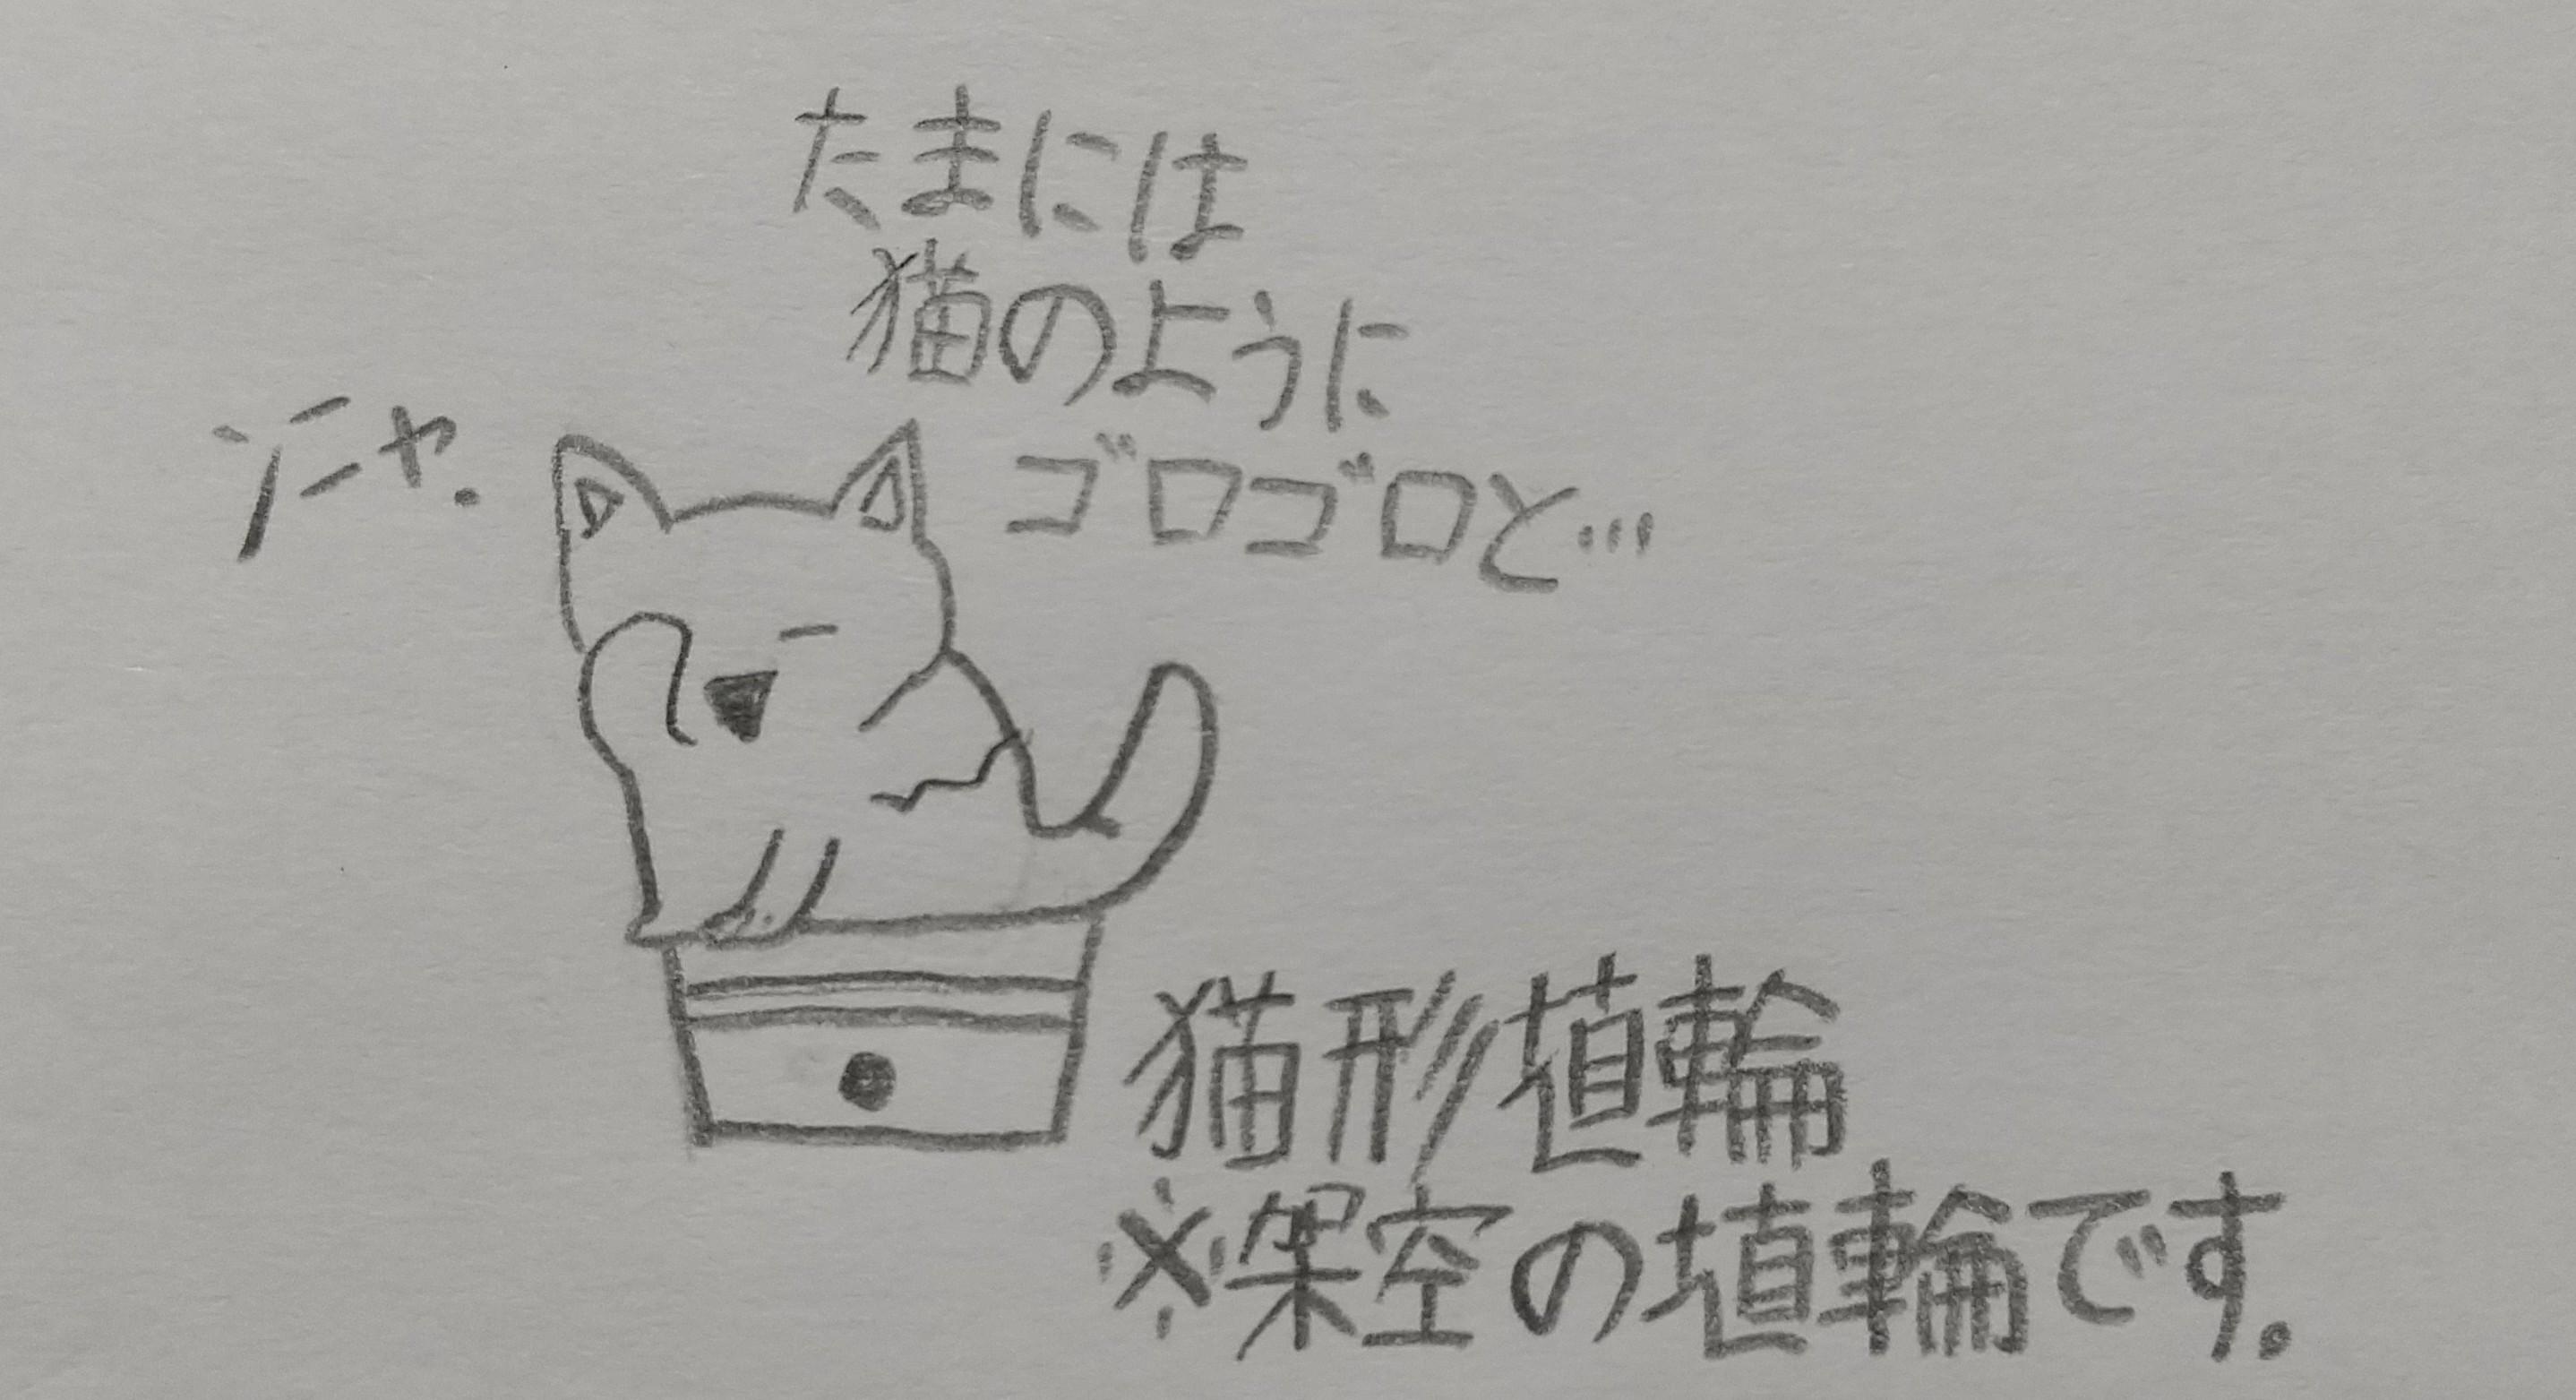 たまには
猫のように
ゴロゴロと…
ンニャ.
猫形埴輪
※架空の埴輪です.